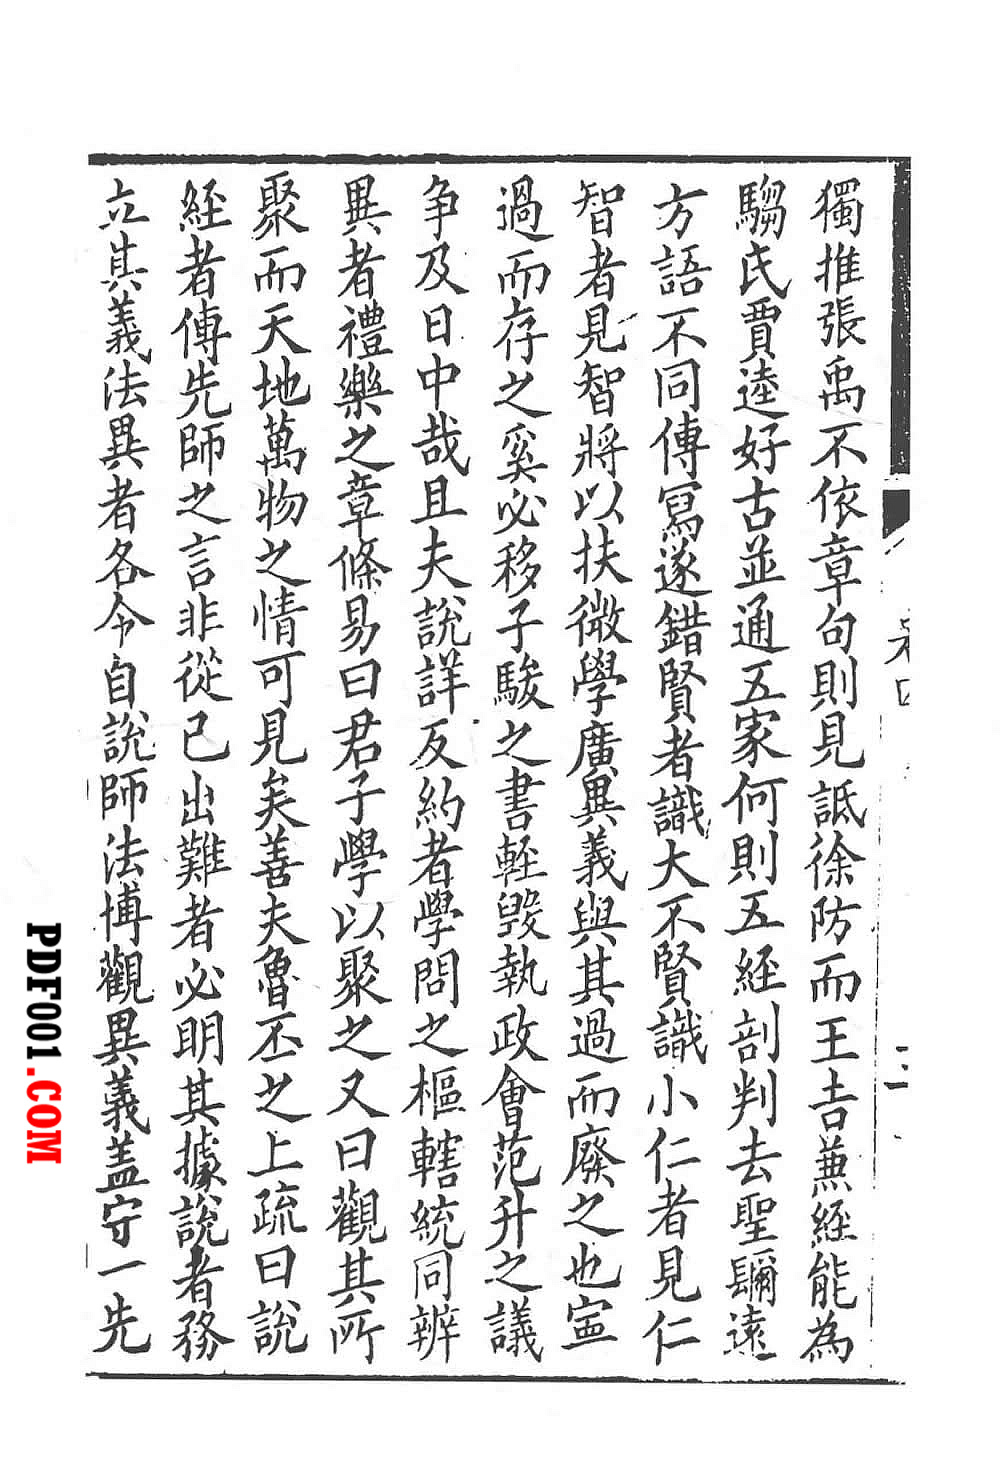 獨推張禹不依章句則見詆徐防而王吉兼經能為
騶氏賈逵好古並通五家何則五經剖判去聖彌遠
方語不同傳冩遂錯賢者識大不賢識小仁者見仁
智者見智將以扶微學廣異義與其過而廢之也寍
過而存之奚必移子駿之書輕毀執政會范升之議
争及日中哉且夫說詳反約者學問之樞轄統同辨
異者禮樂之章條易曰君子學以聚之又曰觀其所
聚而天地萬物之情可見矣善夫魯丕之上疏曰說
經者傳先師之言非從己出難者必明其據說者務
立其義法異者各令自說師法博觀異義盖守一先
卷四
二
PDF001.COM